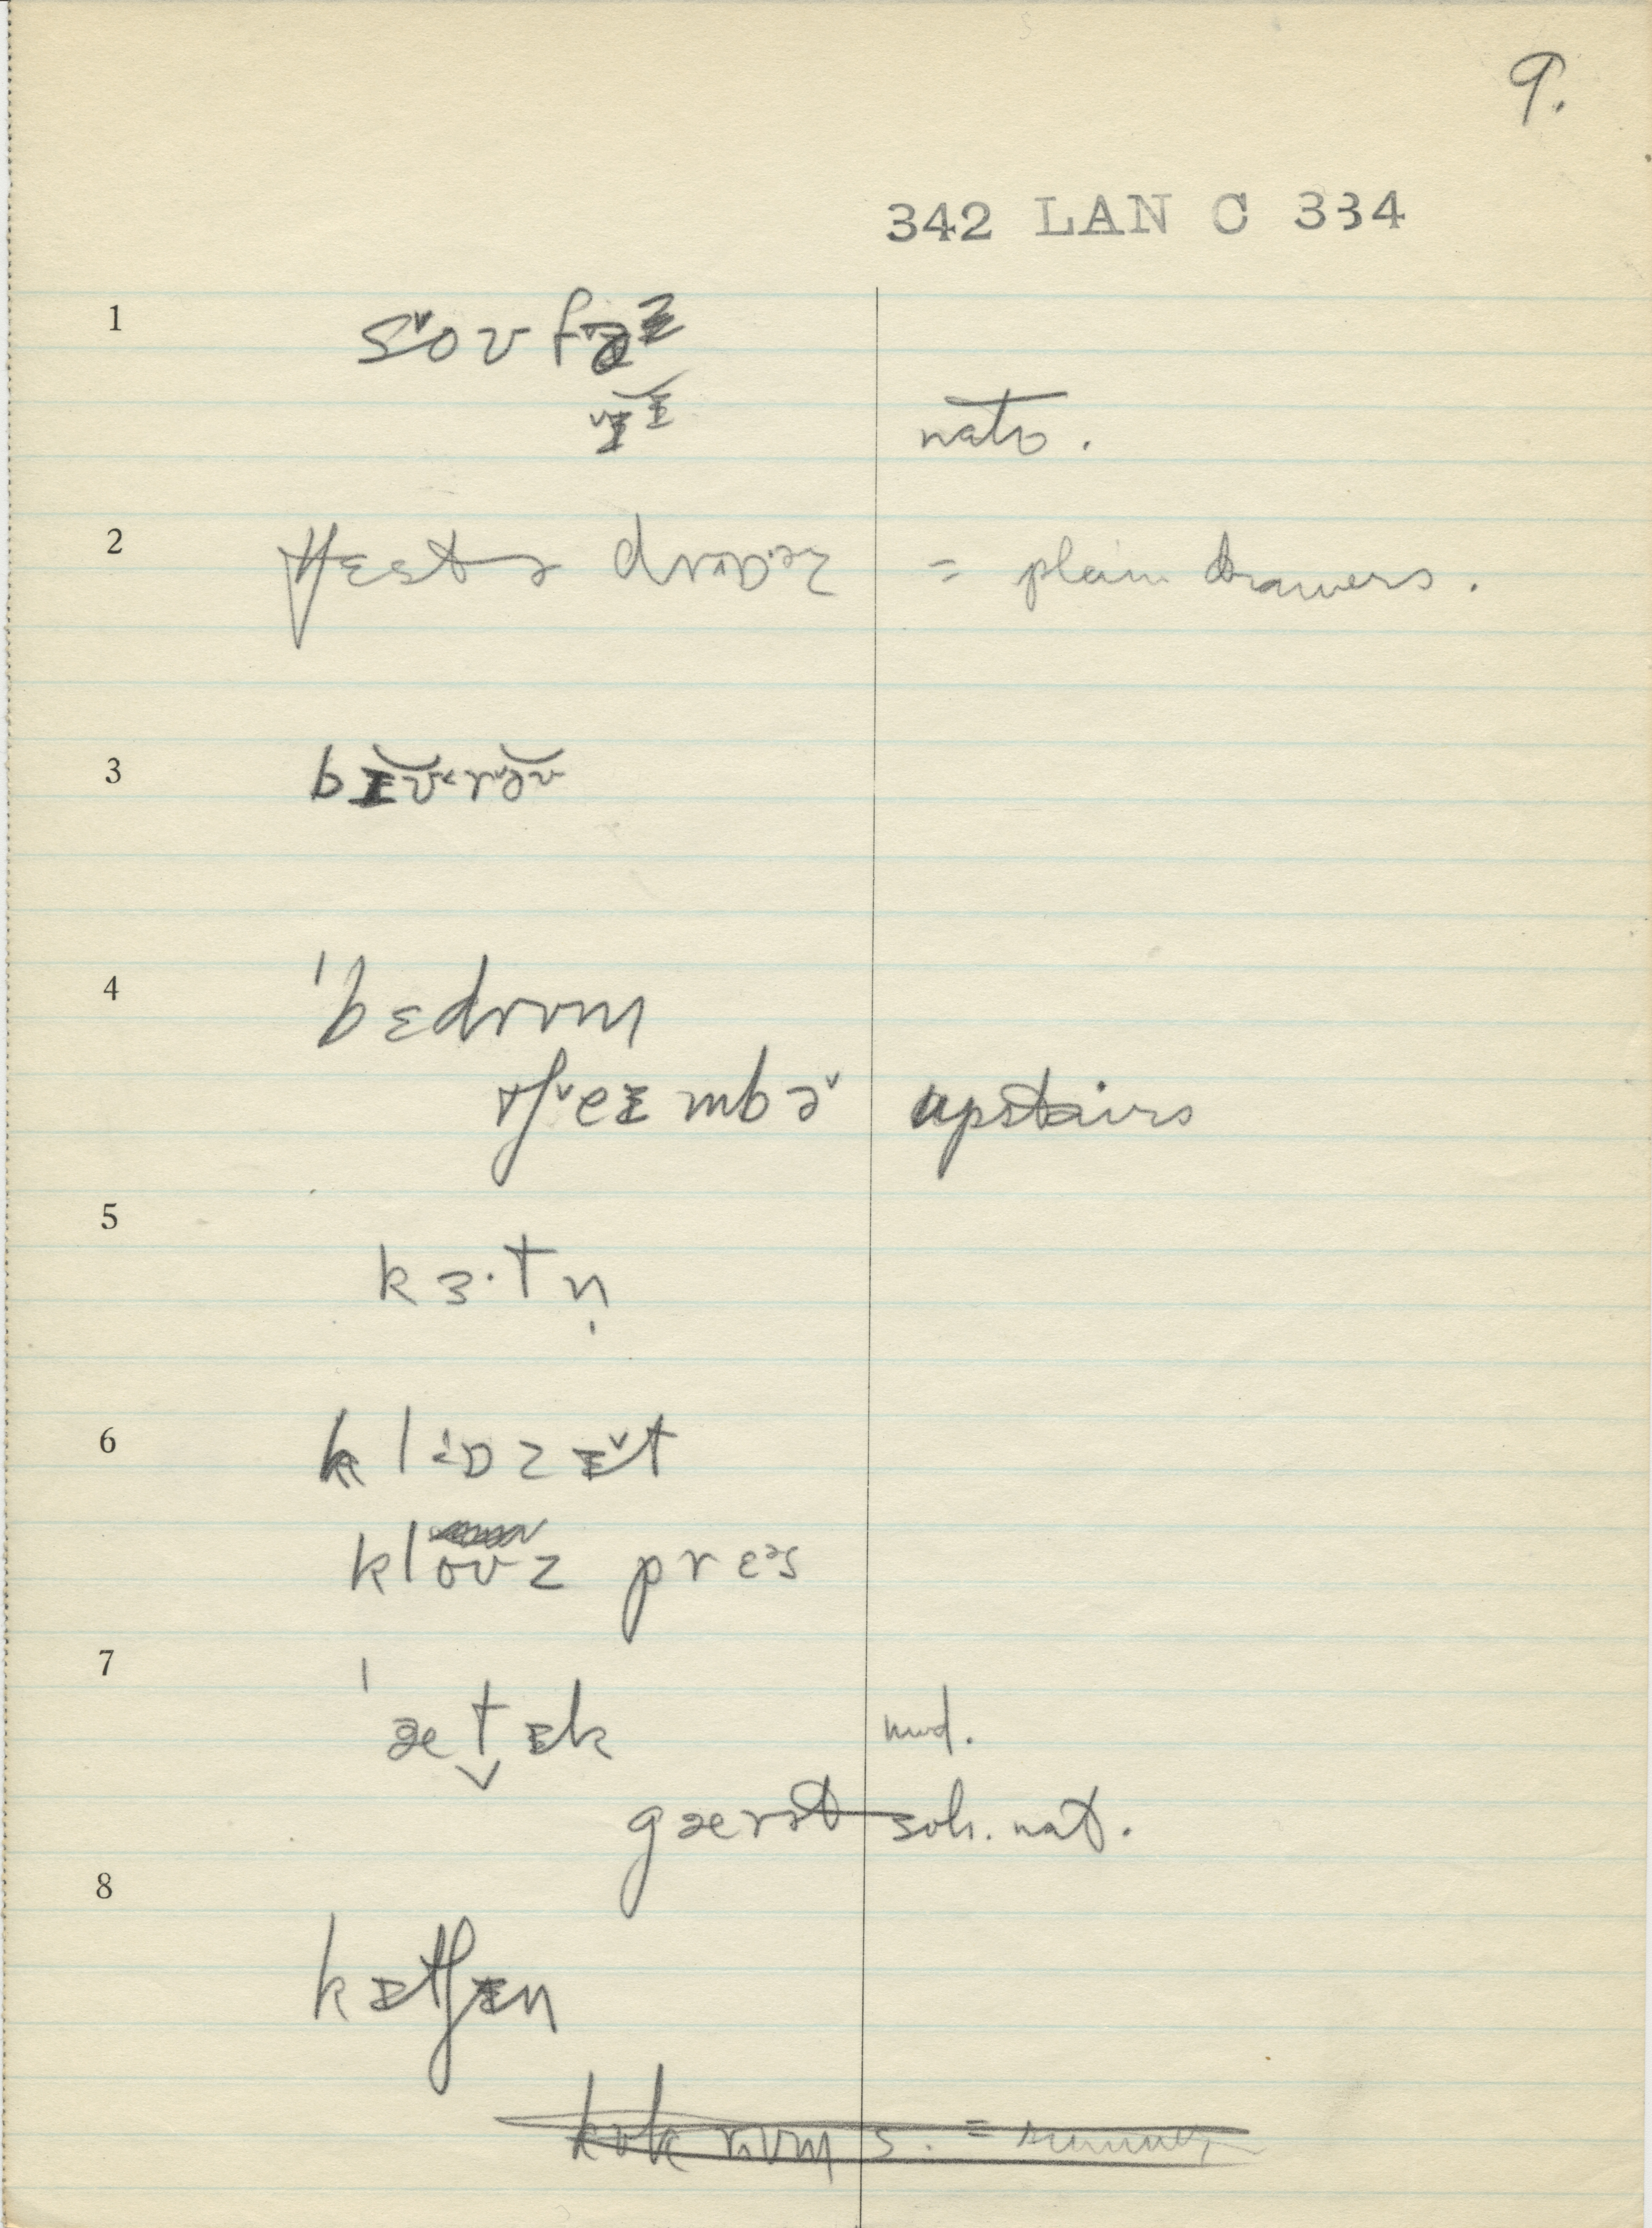 9.
342 LAN C 334
1 sˇoʊ fˇəɪ
ˇɪɪ
nato.
2 tʃɛst ə drɒ·əz = plain drawers.
3 bɪʊ˂rˇəʊ
4 ˈbɛdrʊm
tʃˇeɪmbəˇ upstairs
5 kɜ·tn̩
6 klɒzɪˇt
kloʊz prɛəs
7 ˈætɪk mod.
gærət – soh. nat.
8 kɪtʃɪn